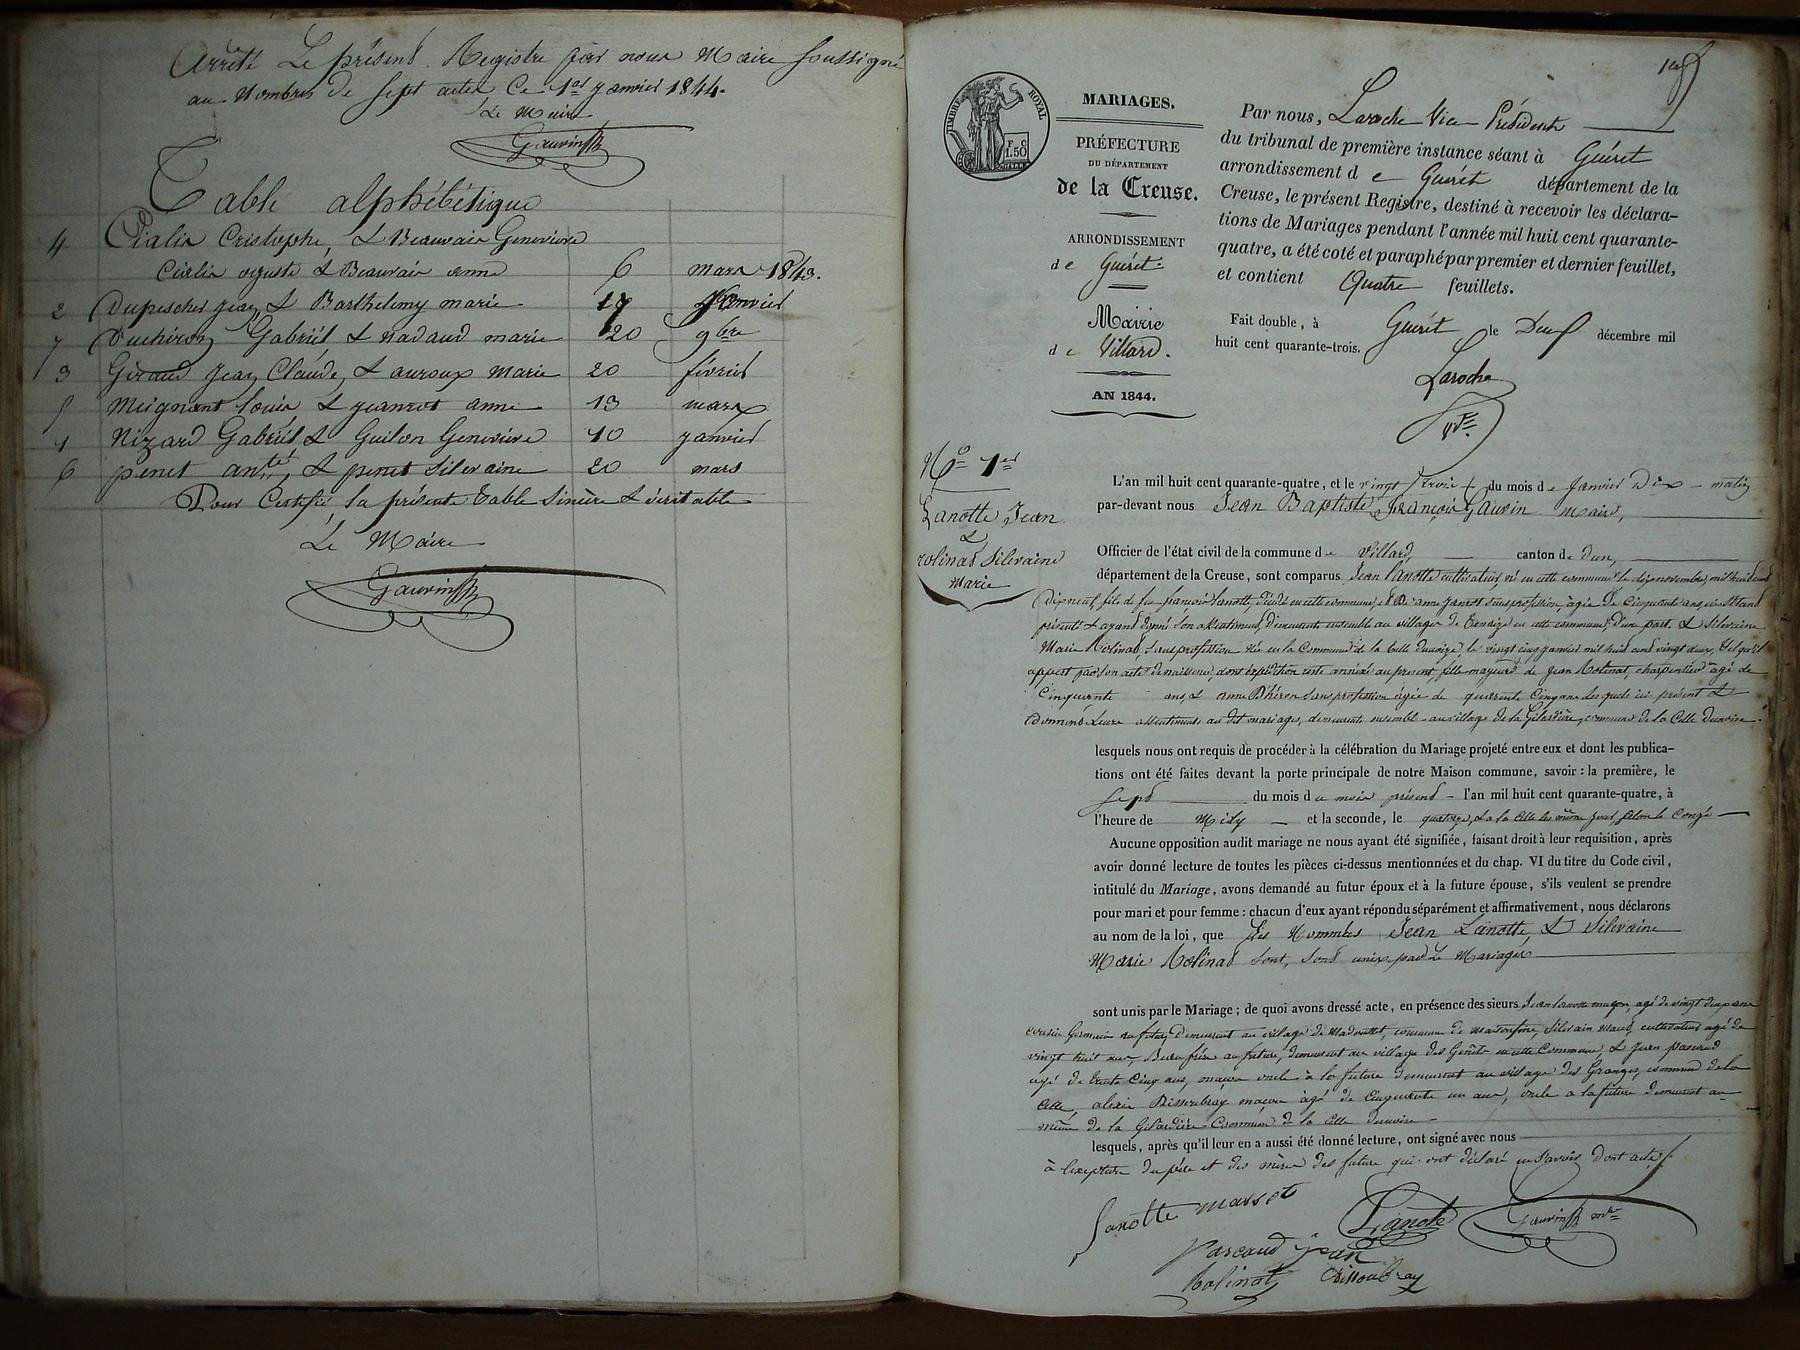 Arrêté Le présend Registre par nous Maire soussigné
au Nombres de sept actes Ce 1er janvier 1844.
Le Maire
Gauvin
Table alphébétique
4 Cialis Cristophe, & Beauvais Genevieve
Cialis auguste & Beauvais anne 6 mars 1843.
2 Dupescher jean & Barthelemy marie 17 janvier
7 Duchiron Gabriel & nadaud marie 20 9bre
3 Giraud jean Claude, & auroux Marie 20 févried
5 Meignant louis & jeanrot anne 13 mars
1 Nizard Gabriel & Guilon Genevieve 10 janvier
6 penet ante, & penet silvaine 20 mars
Pour Certifié la présente table Sinsère & véritable
Le Maire
Gauvin
1er
TIMBRE ROYAL
F. C
1.50
MARIAGES.
PRÉFECTURE
DU DÉPARTEMENT
de la Creuse.
ARRONDISSEMENT
de Guéret
Mairie
de Villard.
AN 1844.
Par nous, Laroche Vice Président
du tribunal de première instance séant à Guéret
arrondissement de Guéret département de la
Creuse, le présent Registre, destiné à recevoir les déclara-
tions de Mariages pendant l'année mil huit cent quarante-
quatre, a été coté et paraphé par premier et dernier feuillet,
et contient Quatre feuillets.
Fait double, à Guéret le Deux décembre mil
huit cent quarante-trois.
Laroche
No 1er
Lanotte Jean
&
rolinat Silvaine
Marie
L'an mil huit cent quarante-quatre, et le vingt trois du mois de Janvier Dix matin
par-devant nous Jean Baptiste françois Gauvin maire,
Officier de l'état civil de la commune de Villard, canton de Dun,
département de la Creuse, sont comparus Jean lanotte cultivateur né en cette commune le dix novembre, mil huit cent
Dix neuf, fils de feu françois lanotte, décédé en cette commune, & De anne janrot sans profession, agée De Cinquante ans,
présente & ayand donné son assentiment, Demeurant ensemble au village de en cette commune, D'une part. & Silvaine
Marie Rolinat, Sans profession Née en la Commune de la Celle dunoise, le vingt cinq janvier mil huit cent vingt deux, tel qu'il
appert par son acte de naissance, dont éxpédition reste annéxé au présent fille mageure de Jean Rolinat, charpentier agé de
Cinquante ans, & anne sans profession agée de quarente Cinq ans les quels ici présent &
donnent Leurs assentiments au dit mariage, demeurent ensemble au village de la Gilardière, commune de la Celle Dunoise.
lesquels nous ont requis de procéder à la célébration du Mariage projeté entre eux et dont les publica-
tions ont été faites devant la porte principale de notre Maison commune, savoir : la première, le
sept du mois du mois présend l'an mil huit cent quarante-quatre, à
l'heure de Midy et la seconde, le quatorze, & a la Celle les même jour,
Aucune opposition audit mariage ne nous ayant été signifiée, faisant droit à leur requisition, après
avoir donné lecture de toutes les pièces ci-dessus mentionnées et du chap. VI du titre du Code civil,
intitulé du Mariage, avons demandé au futur époux et à la future épouse, s'ils veulent se prendre
pour mari et pour femme : chacun d'eux ayant répondu séparément et affirmativement, nous déclarons
au nom de la loi, que les Nommées Jean Lanotte, & Silvaine
Marie Rolinat sont, sont unis par Le Mariage
sont unis par le Mariage ; de quoi avons dressé acte, en présence des sieurs Jean lanotte maçon, agé de vingt deux ans
cousin Germain au futur, Demeurant au village de commune de silvain cultivateur agé de
vingt huit ans, Beau frère au future, demeurant au village des Genêt en cette Commune, & jean pascaud
agé de trente Cinq ans, maçon oncle à la future demeurant au village des Granges, commune de la
Celle, alexis Bissoubray maçon agé de Cinquente un ans, oncle a la future demeurant au
même de la Gilardière Commune de la Celle dunoise
lesquels, après qu'il leur en a aussi été donné lecture, ont signé avec nous
à l'exeption du père et des mères des future qui ont déclaré ne savoir Dont acte
Lanotte
Lanotte
Gauvin
Pascaud jean
Rolinat
Bissoubray